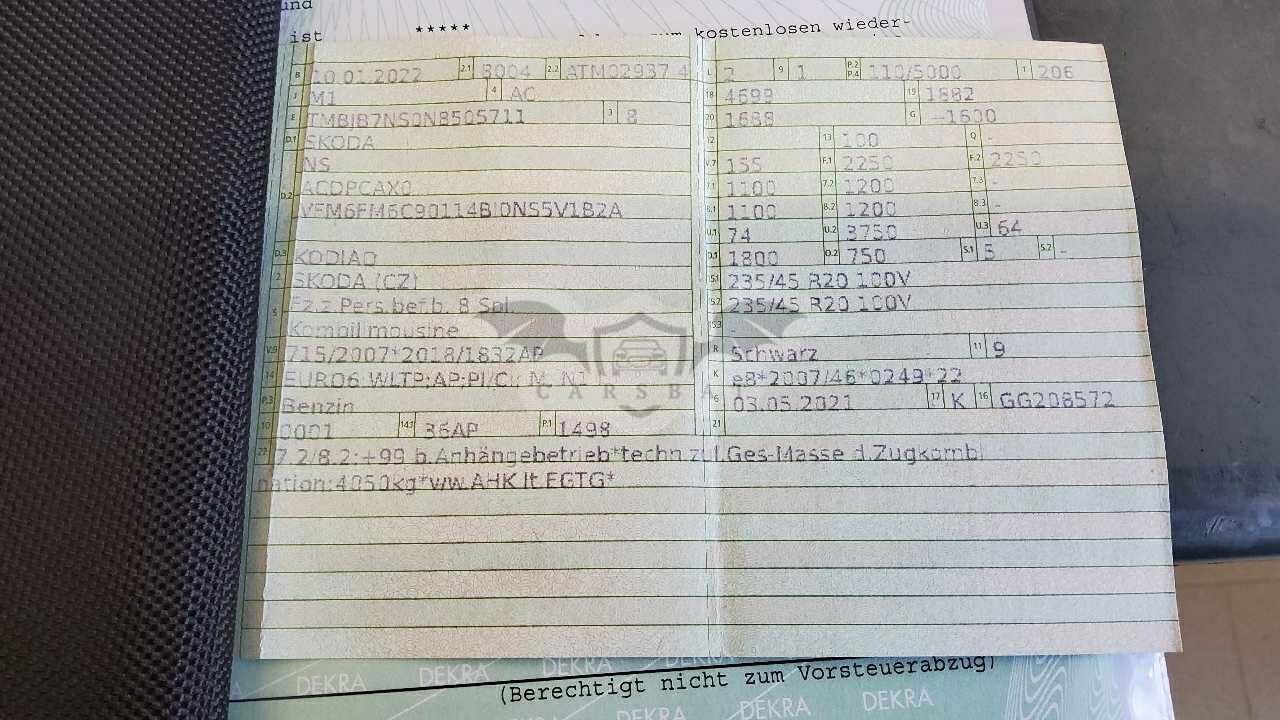 und
ist *****
zum kostenlosen wieder-
B 10.01.2022 2.1 8004 2.2 ATM02937 4
J M1 4 AC
E 3 8
D.1 SKODA
NS
D.2 ACDPCAX0
D.3 KODIAQ
2 SKODA (CZ)
5 Fz.z.Pers.bef.b. 8 Spl.
Kombilimousine
V.9 715/2007*2018/1832AP
14 EURO6 WLTP;AP;PI/CI; M, N1
P.3 Benzin
10 0001 14.1 36AP P.1 1498
L 2 9 1 P.2 P.4 110/5000 T 206
18 4699 19 1882
20 1688 G -1600
12 13 100 Q -
V.7 155 F.1 2250 F.2 2250
7.1 1100 7.2 1200 7.3 -
8.1 1100 8.2 1200 8.3 -
U.1 74 U.2 3750 U.3 64
O.1 1800 O.2 750 S.1 5 S.2 -
15.1 235/45 R20 100V
15.2 235/45 R20 100V
15.3 -
R Schwarz 11 9
K e8*2007/46*0249*22
6 03.05.2021 17 K 16 GG208572
21
22 7.2/8.2:+99 b.Anhängebetrieb*techn.zul.Ges-Masse d.Zugkombi
nation:4050kg*ww.AHK lt.EGTG*
CARSBA
DEKRA DEKRA DEKRA
(Berechtigt nicht zum Vorsteuerabzug)
DEKRA DEKRA DEKRA